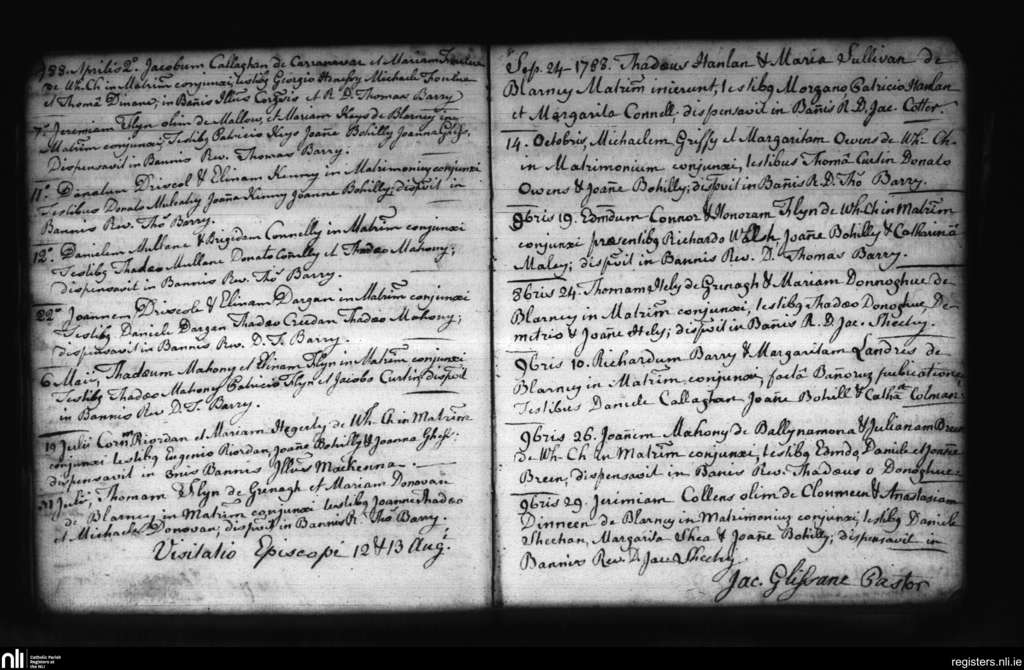 1788. Aprilis 2º. Jacobum Callaghan de Carranavar et Mariam
de Wh. Ch in Matrim̄ conjunxi, testibq Georgio Michaele
et Thomâ Dinane, in Bañis Illus et R. D. Thomas Barry
7º. Jeremiam Flyn olim de Mallow, et Mariam Keys de Blarney in
Matrim̄ conjunxi, Testibq Patricio Keys Joañe Bohilly Joanna
Dispensavit in Bannis Rev. Thomas Barry.
11º. Danielem Driscol & Elinam Kenny in Matrimonium conjunxi
Testibus Donato Mulcahy Joañe Kenny Joanne Bohilly; disp̄vit in
Bannis Rev. Thō Barry.
12º. Danielem Mullane & Brigidam Connelly in Matrim̄ conjunxi
Testibq Thadæo Mullane Donato Coñelly et Thadæo Mahony;
dispensavit in Bannis Rev. Thō Barry.
22º Joannem Driscole & Elinam Dargan in Matrim̄ conjunxi
Testibq Daniele Dargan Thadæo Creedan Thadæo Mahony;
dispensavit in Bannis Rev. D. T. Barry.
6 Maii, Thadæum Mahony et Elinam Flyn in Matrim̄ conjunxi
Testibq Thadæo Mahony Patricio Flyn et Jacobo Curtin, disp̄vit
in Bannis Rev D. T. Barry.
19 Julii Corn̄m Riordan et Mariam Hegerty de Wh. Ch in Matrim̄
conjunxi testibq Eugenio Riordan, Joañe Bohilly & Joanna
dispensavit in Bannis Illus̄ Mackenna.
31 Julii, Thomam Flyn de Grenagh et Mariam Donovan
de Blarney in Matrim̄ conjunxi testibq Joanne Thadæo
et Michaele Donovan; disp̄vit in Bannis R. Thō Barry.
Visitatio Episcopi 12 & 13 Augt.
Sep. 24 - 1788. Thadæus Hanlan & Maria Sullivan de
Blarney Matrim̄ inierunt, testibq Morgano Patricio Hanlan
et Margarita Connell. dispensavit in Bañis R. D. Jac. Cotter.
14. Octobris, Michaelem Griffy et Margaritam Owens de Wh. Ch-
in Matrimonium conjunxi, testibus Thomâ Curtin Donato
Owens & Joañe Bohilly; disp̄vit in Bañis R. D. Thō Barry.
8bris 19. Edmdum Connor & Honoram Flyn de Wh. Ch in Matrim̄
conjunxi præsentibq Richardo Welsh, Joañe Bohilly & Catharinâ
Maley; disp̄vit in Bannis Rev. D. Thomas Barry.
8bris 24. Thomam Hely de Grenagh & Mariam Donnoghue de
Blarney in Matrim̄ conjunxi, testibq Thadæo Donoghue, De-
metrio & Joañe Hely; disp̄vit in Bañis R. D. Jac. Sheehy.
9bris 10. Richardum Barry & Margaritam Landres de
Blarney in Matrim̄ conjunxi, factâ Bañoruz publicatione,
Testibus Daniele Callaghan Joañe Bohill & Cathat Colman
9bris 26. Joañem Mahony de Ballynamona & Julianam Breen
de Wh. Ch in Matrim̄ conjunxi, testibq Edmdo Daniele et Joañe
Breen, dispensavit in Banis Rev. Thadæus o Donoghue.
9bris 29. Jerimiam Collens olim de Clonmeen & Anastasiam
Dinneen de Blarney in Matrimoniuz conjunxi, testibq Daniele
Sheehan, Margarita Shea & Joañe Bohilly; dispensavit in
Bannis Rev. D. Jac. Sheehy
Jac. Glissane Pastor
nli Catholic Parish
Registers at
the NLI
registers.nli.ie